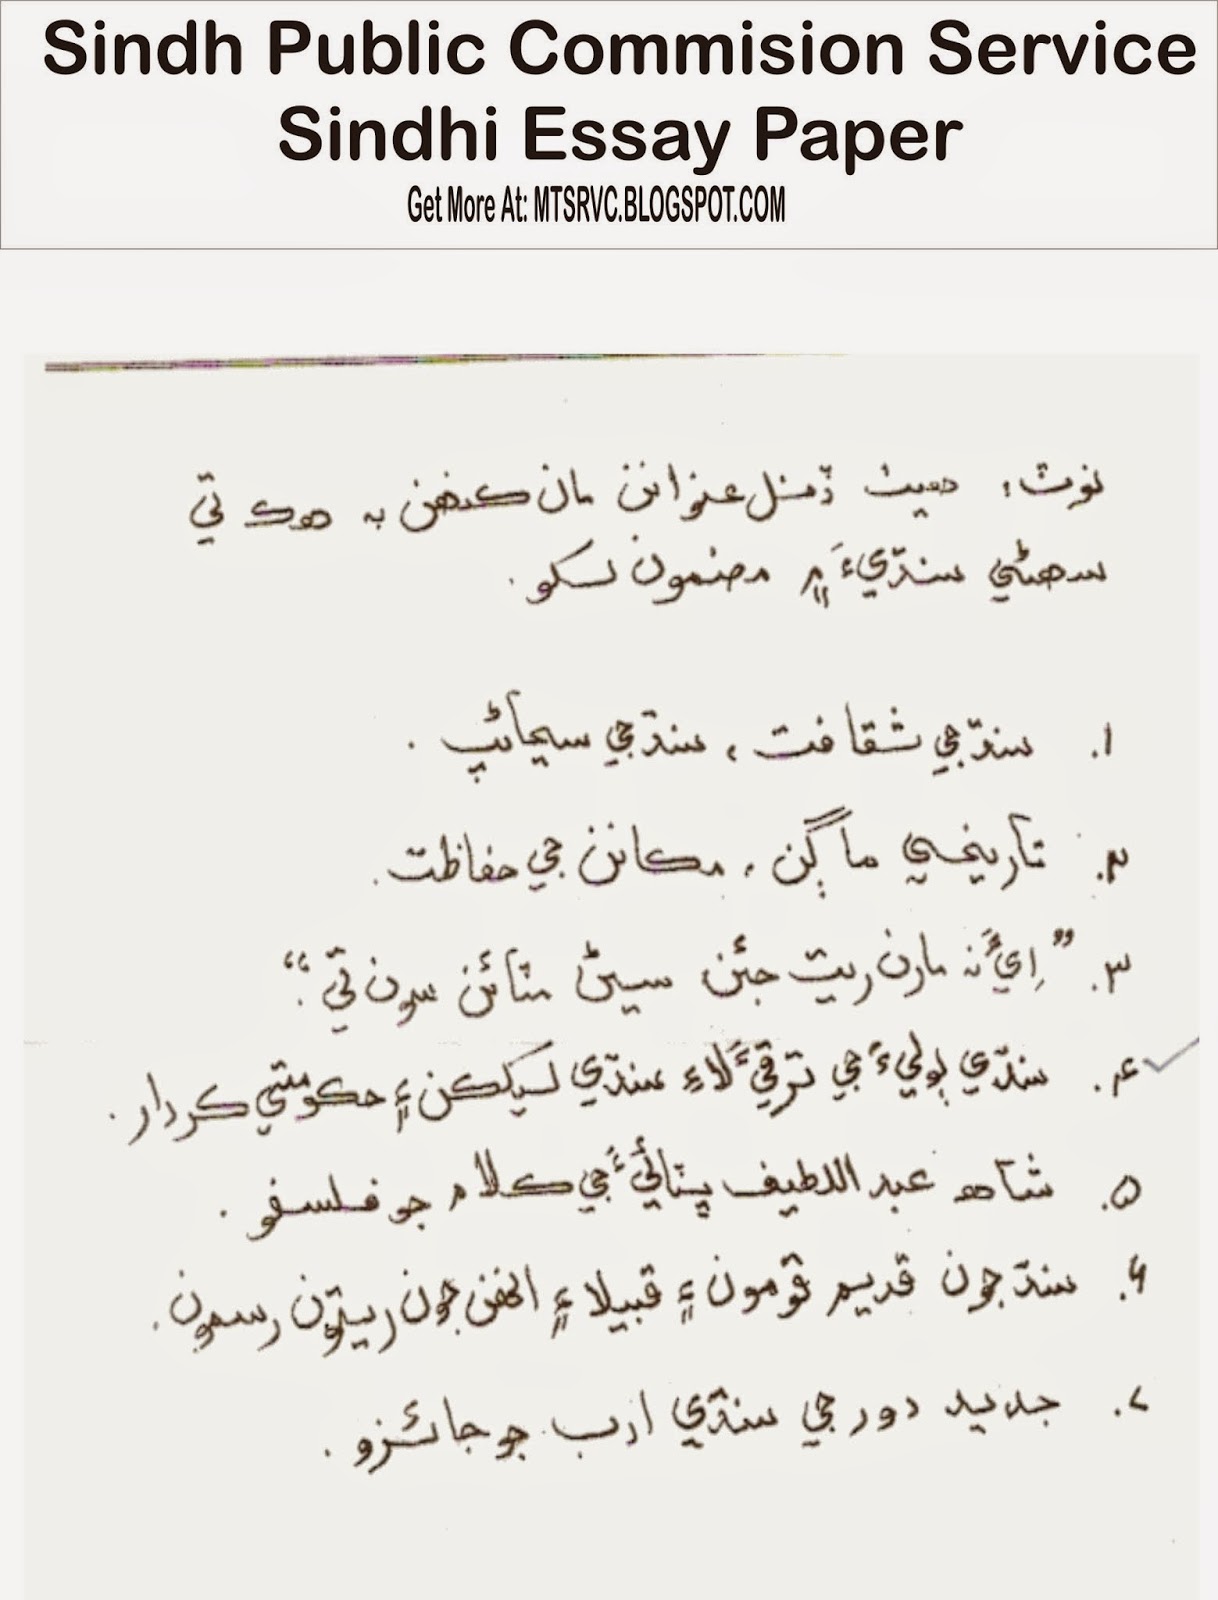 Sindh Public Commision Service
Sindhi Essay Paper
Get More At: MTSRVC.BLOGSPOT.COM
نوٽ: هيٺ ڏنل عنوانن مان ڪنهن به هڪ تي
سهڻي سنڌيءَ ۾ مضمون لکو.
۱. سنڌ جي ثقافت، سنڌ جي سڃاڻپ.
۲. تاريخي ماڳن، مڪانن جي حفاظت.
۳. ”اِيءُ نہ مارن ريت جئن سيڻ مٽائن سون تي“.
۴. سنڌي ٻوليءَ جي ترقيءَ لاءِ سنڌي ليکڪن ۽ حڪومتي ڪردار.
۵. شاھ عبداللطيف ڀٽائيءَ جي ڪلام جو فلسفو.
۶. سنڌ جون قديم قومون ۽ قبيلا ۽ انهن جون ريتون رسمون.
۷. جديد دور جي سنڌي ادب جو جائزو.